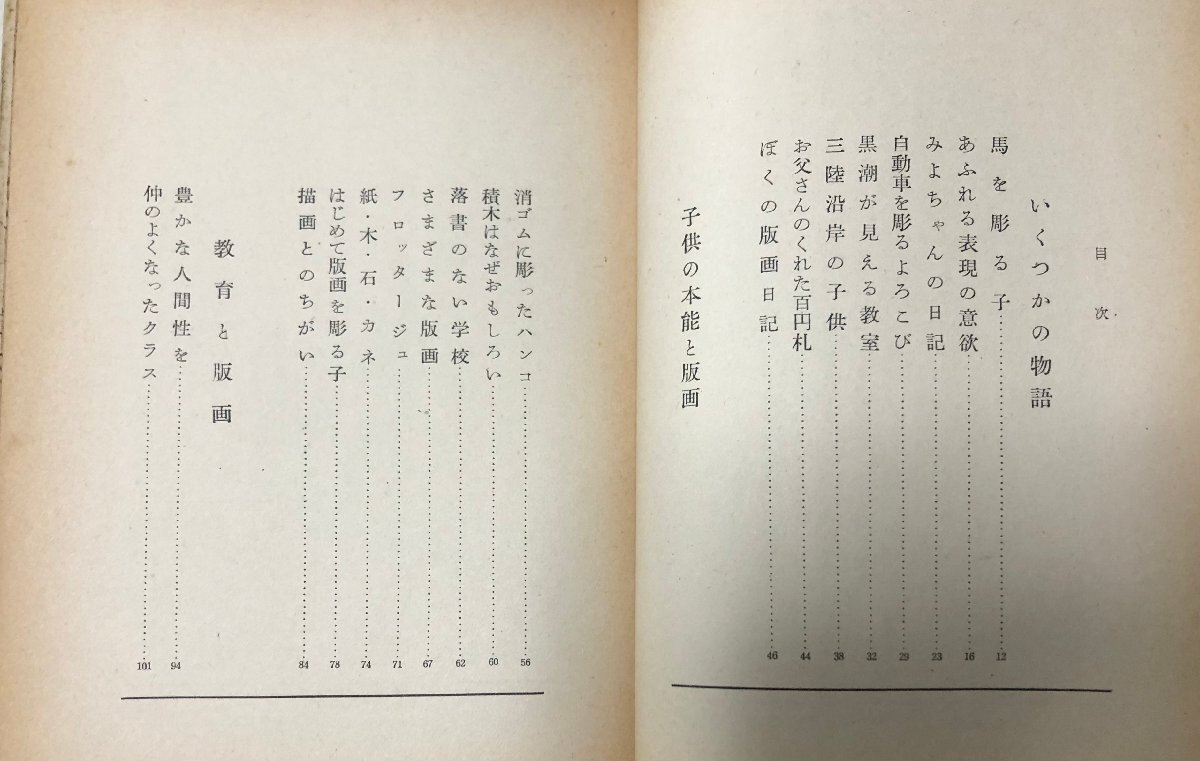 目次
いくつかの物語
馬を彫る子……12
あふれる表現の意欲……16
みよちゃんの日記……23
自動車を彫るよろこび……29
黒潮が見える教室……32
三陸沿岸の子供……38
お父さんのくれた百円札……44
ぼくの版画日記……46
子供の本能と版画
消ゴムに彫ったハンコ……56
積木はなぜおもしろい……60
落書のない学校……62
さまざまな版画……67
フロッタージュ……71
紙・木・石・カネ……74
はじめて版画を彫る子……78
描画とのちがい……84
教育と版画
豊かな人間性を……94
仲のよくなったクラス……101